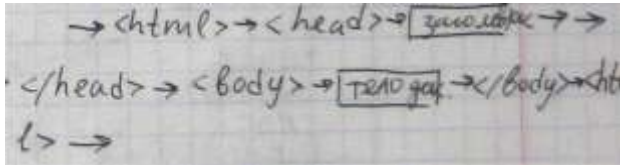 → <html> → <head> → заголовок → →
</head> → <body> → тело док. → </body> → <ht
l> →